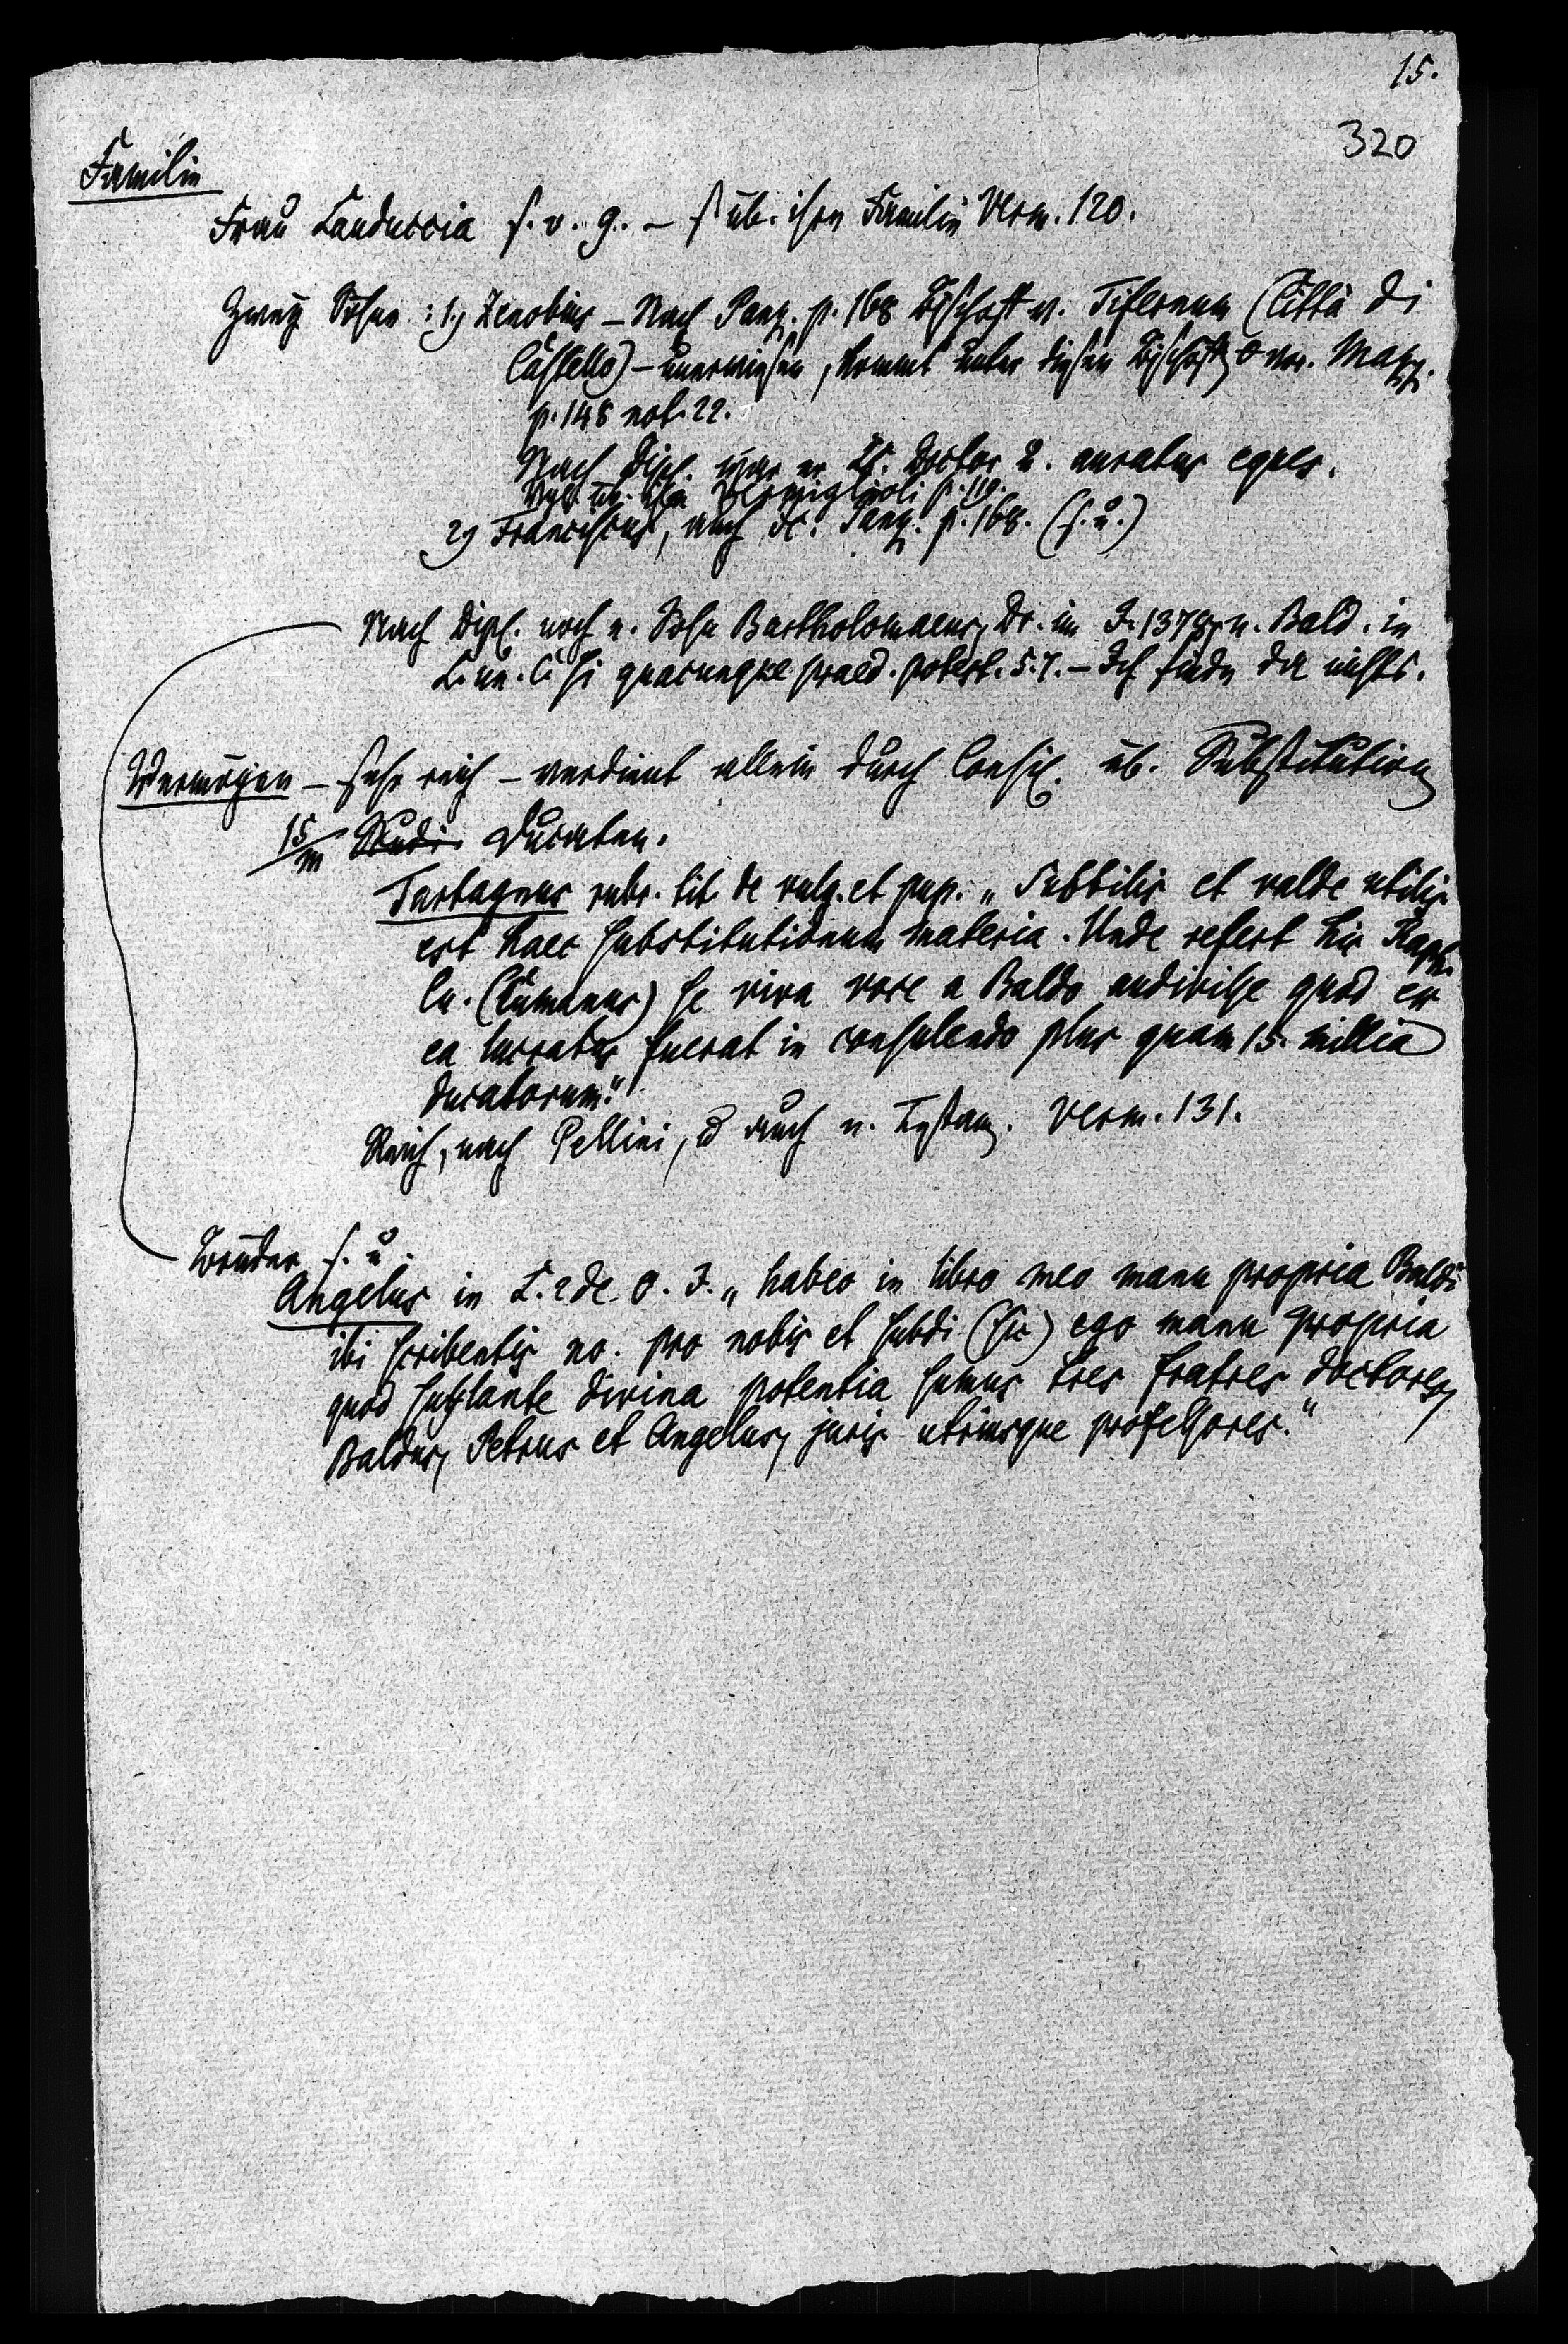 15.
320
Familie
Frau Landuccia s. v. g. – s. üb. ihre Familie Verm. 120.
Zwey Söhne: 1) Zenobius – Nach Panz. p. 168 Bischoff v. Tifernum (Città di
Castello) – unerwiesen, kommt unter diesen Bischöffen vor. Mazz.
p. 148 not. 22.
Nach Dipl. war er Doctor u. auratus eques.
Vgl. üb. ihn Vermiglioli p. 119.
2) Franciscus, auch Dr. Panz. p. 168. (s. u.)
Nach Dipl. noch e. Sohn Bartholomaeus, Dr. im J. 1378, n. Bald. in
L. un. C. si quacunque praed. potest. 5. 7. – Ich finde da nichts.
Vermögen – sehr reich – verdient allein durch Consil. üb. Substitution
15/m Scudi Ducaten.
Tartagnus rubr. tit. de vulg. et pup. „Subtilis et valde utilis
est haec substitutionum materia. Unde refert hic Raph.
Cu. (Cumanus) se viva voce a Baldo audivisse quod ex
ea lucratus fuerat in consulendo plus quam 15. millia
ducatorum."
Reich, nach Pellini, u. auch n. Testam. Verm. 131.
Brüder s. u.
Angelus in L. 2 de O. J. „habeo in libro meo manu propria Baldi
ibi scribentis no. pro nobis et subdi (sic) ego manu propria
quod suffante divina potentia sumus tres fratres doctores,
Baldus, Petrus et Angelus, juris utriusque professores."